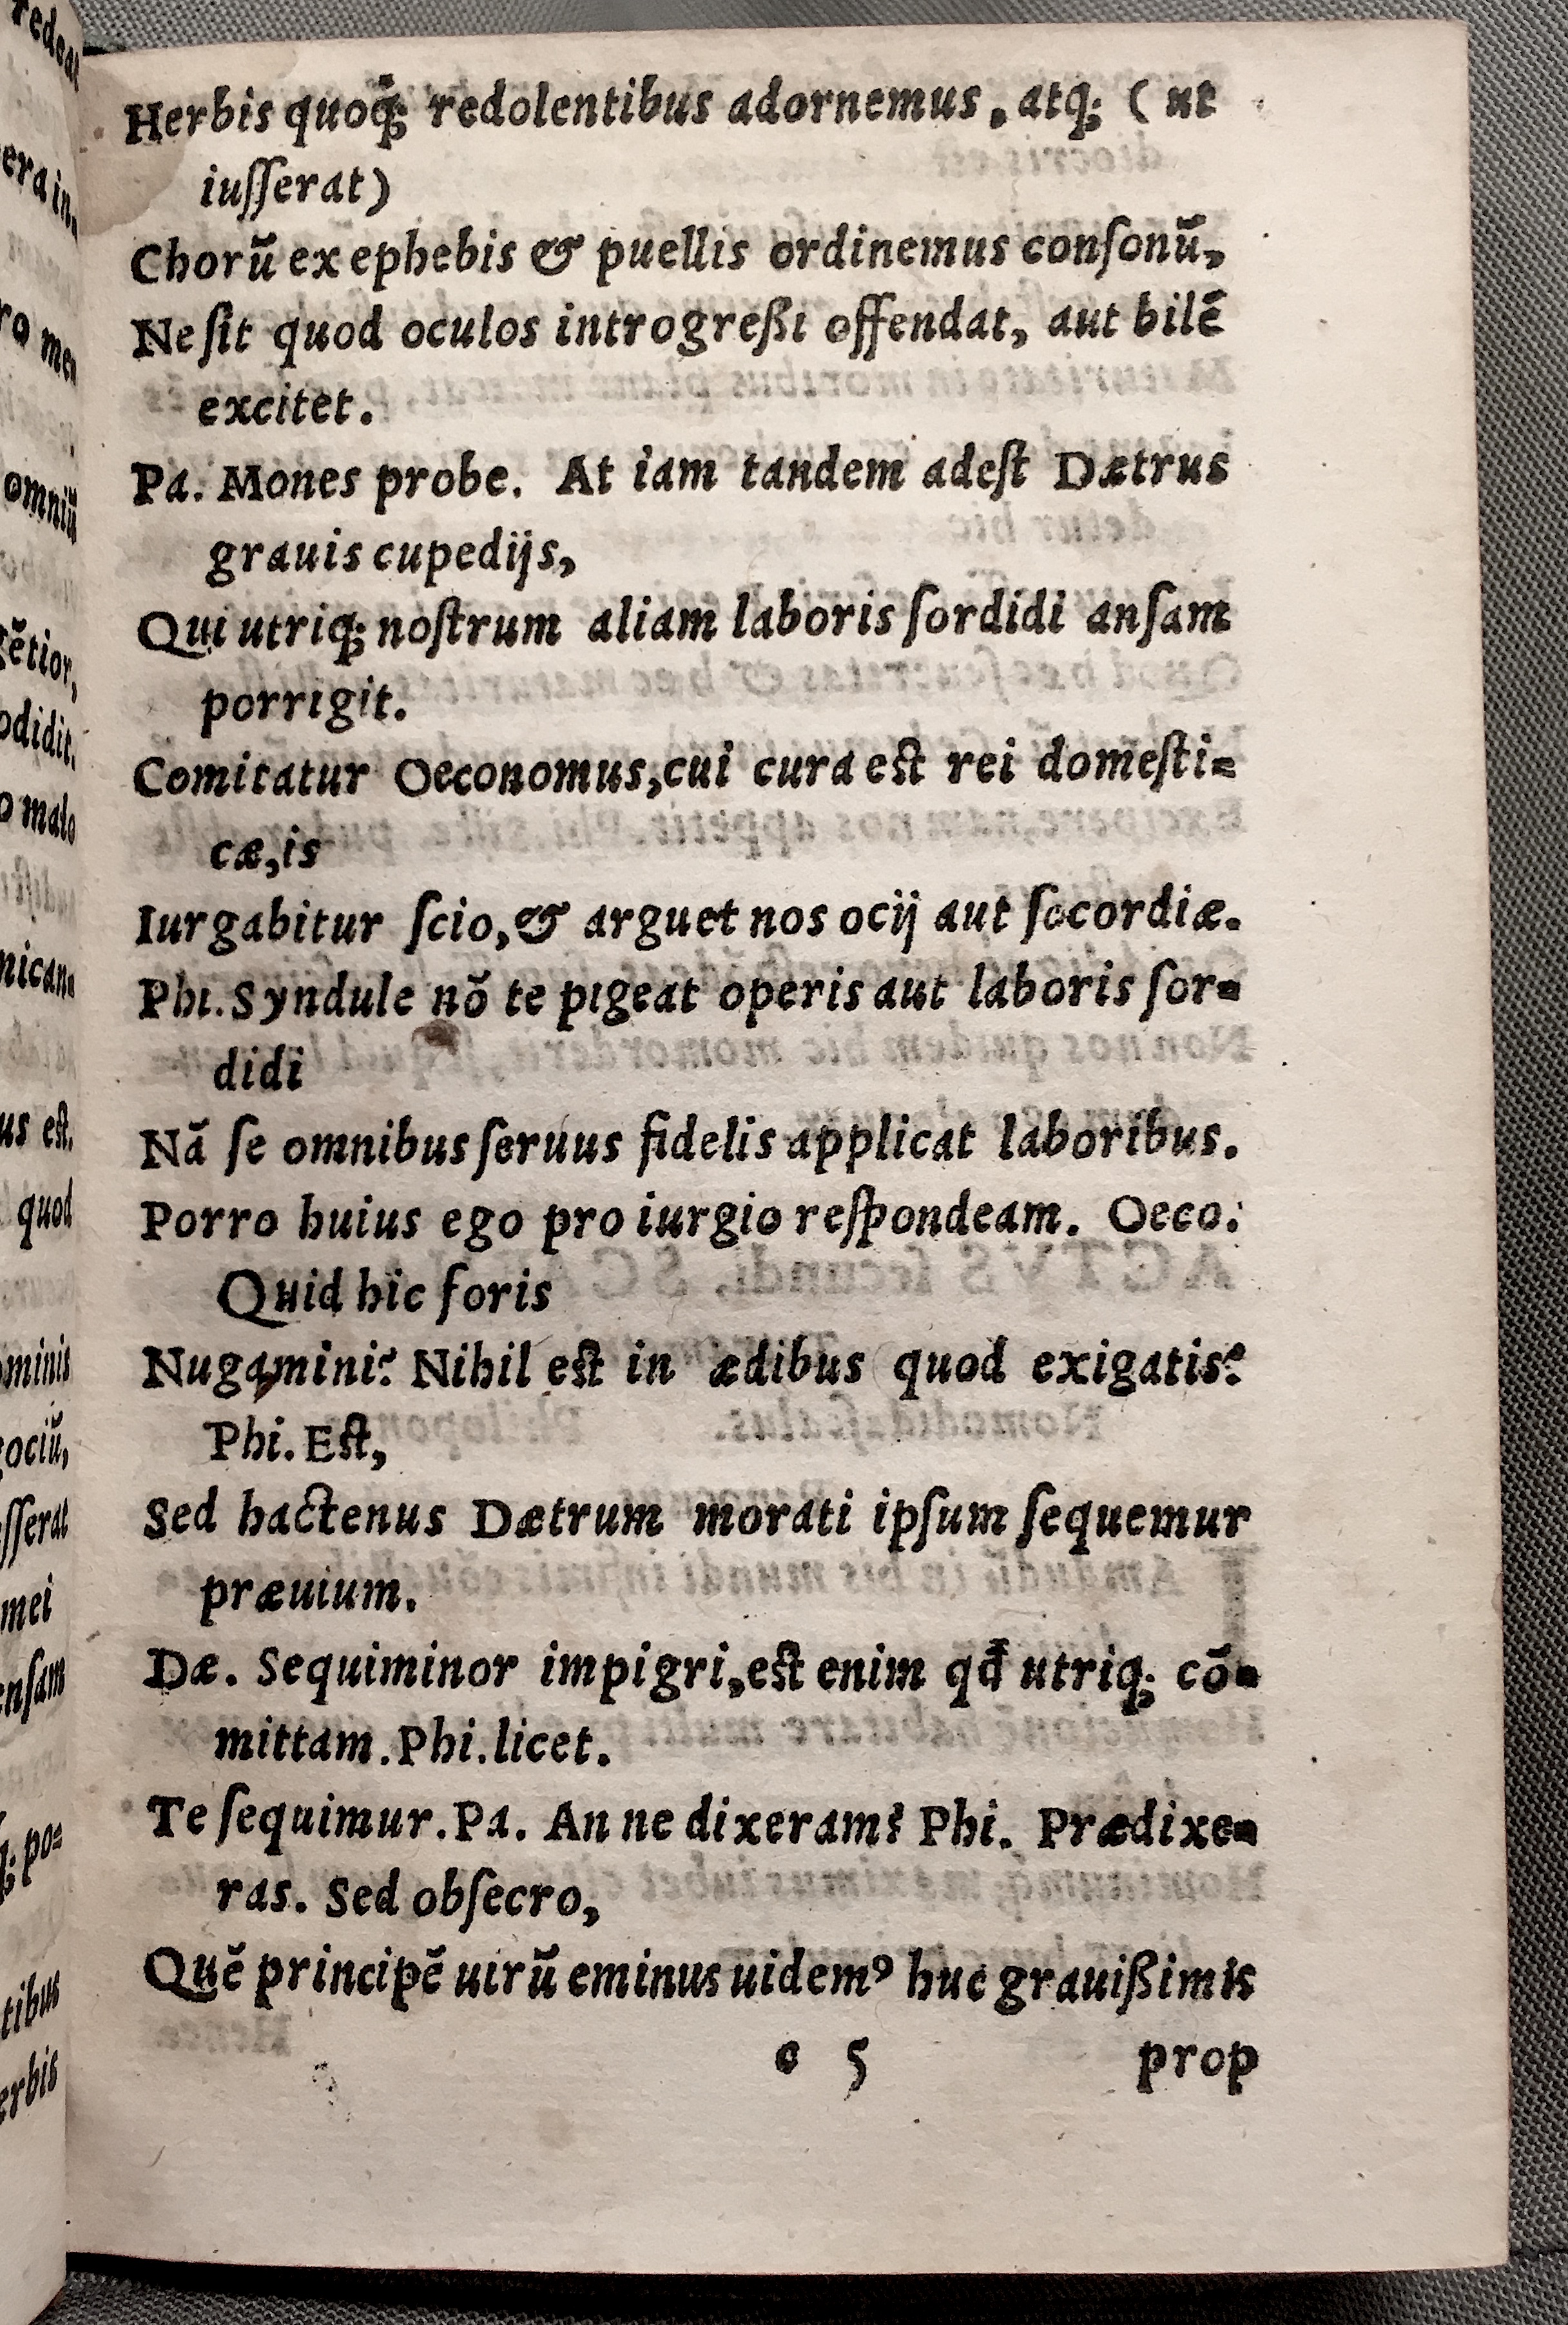 Herbis quoq̃; redolentibus adornemus, atq; ( ut
iuſſerat)
Chorũ ex ephebis & puellis ordinemus conſonũ,
Ne ſit quod oculos introgreßi offendat, aut bilẽ
excitet.
Pa. Mones probe. At iam tandem adeſt Dætrus
grauis cupedijs,
Qui utriq; noſtrum aliam laboris ſordidi anſam
porrigit.
Comitatur Oeconomus, cui cura eſt rei domeſti=
cæ, is
Iurgabitur ſcio, & arguet nos ocij aut ſocordiæ.
Phi. Syndule nõ te pigeat operis aut laboris ſor=
didi
Nã ſe omnibus ſeruus fidelis applicat laboribus.
Porro huius ego pro iurgio reſpondeam. Oeco:
Quid hic foris
Nugamini? Nihil eſt in ædibus quod exigatis?
Phi. Eſt,
Sed hactenus Dætrum morati ipſum ſequemur
præuium.
Dæ. Sequiminor impigri, eſt enim qđ utriq; cõ=
mittam. Phi. licet.
Te ſequimur. Pa. An ne dixeram? Phi. Prædixe=
ras. Sed obſecro,
Quẽ principẽ uirũ eminus uidemꝰ huc grauißimis
c 5 prop
redeat
era in=
ro men
omniũ
gẽtior,
odidit.
o malo
mican=
us eſt.
quod
ominis
gociũ,
ſſerat
mei
enſam
q; po=
tibus
erbis